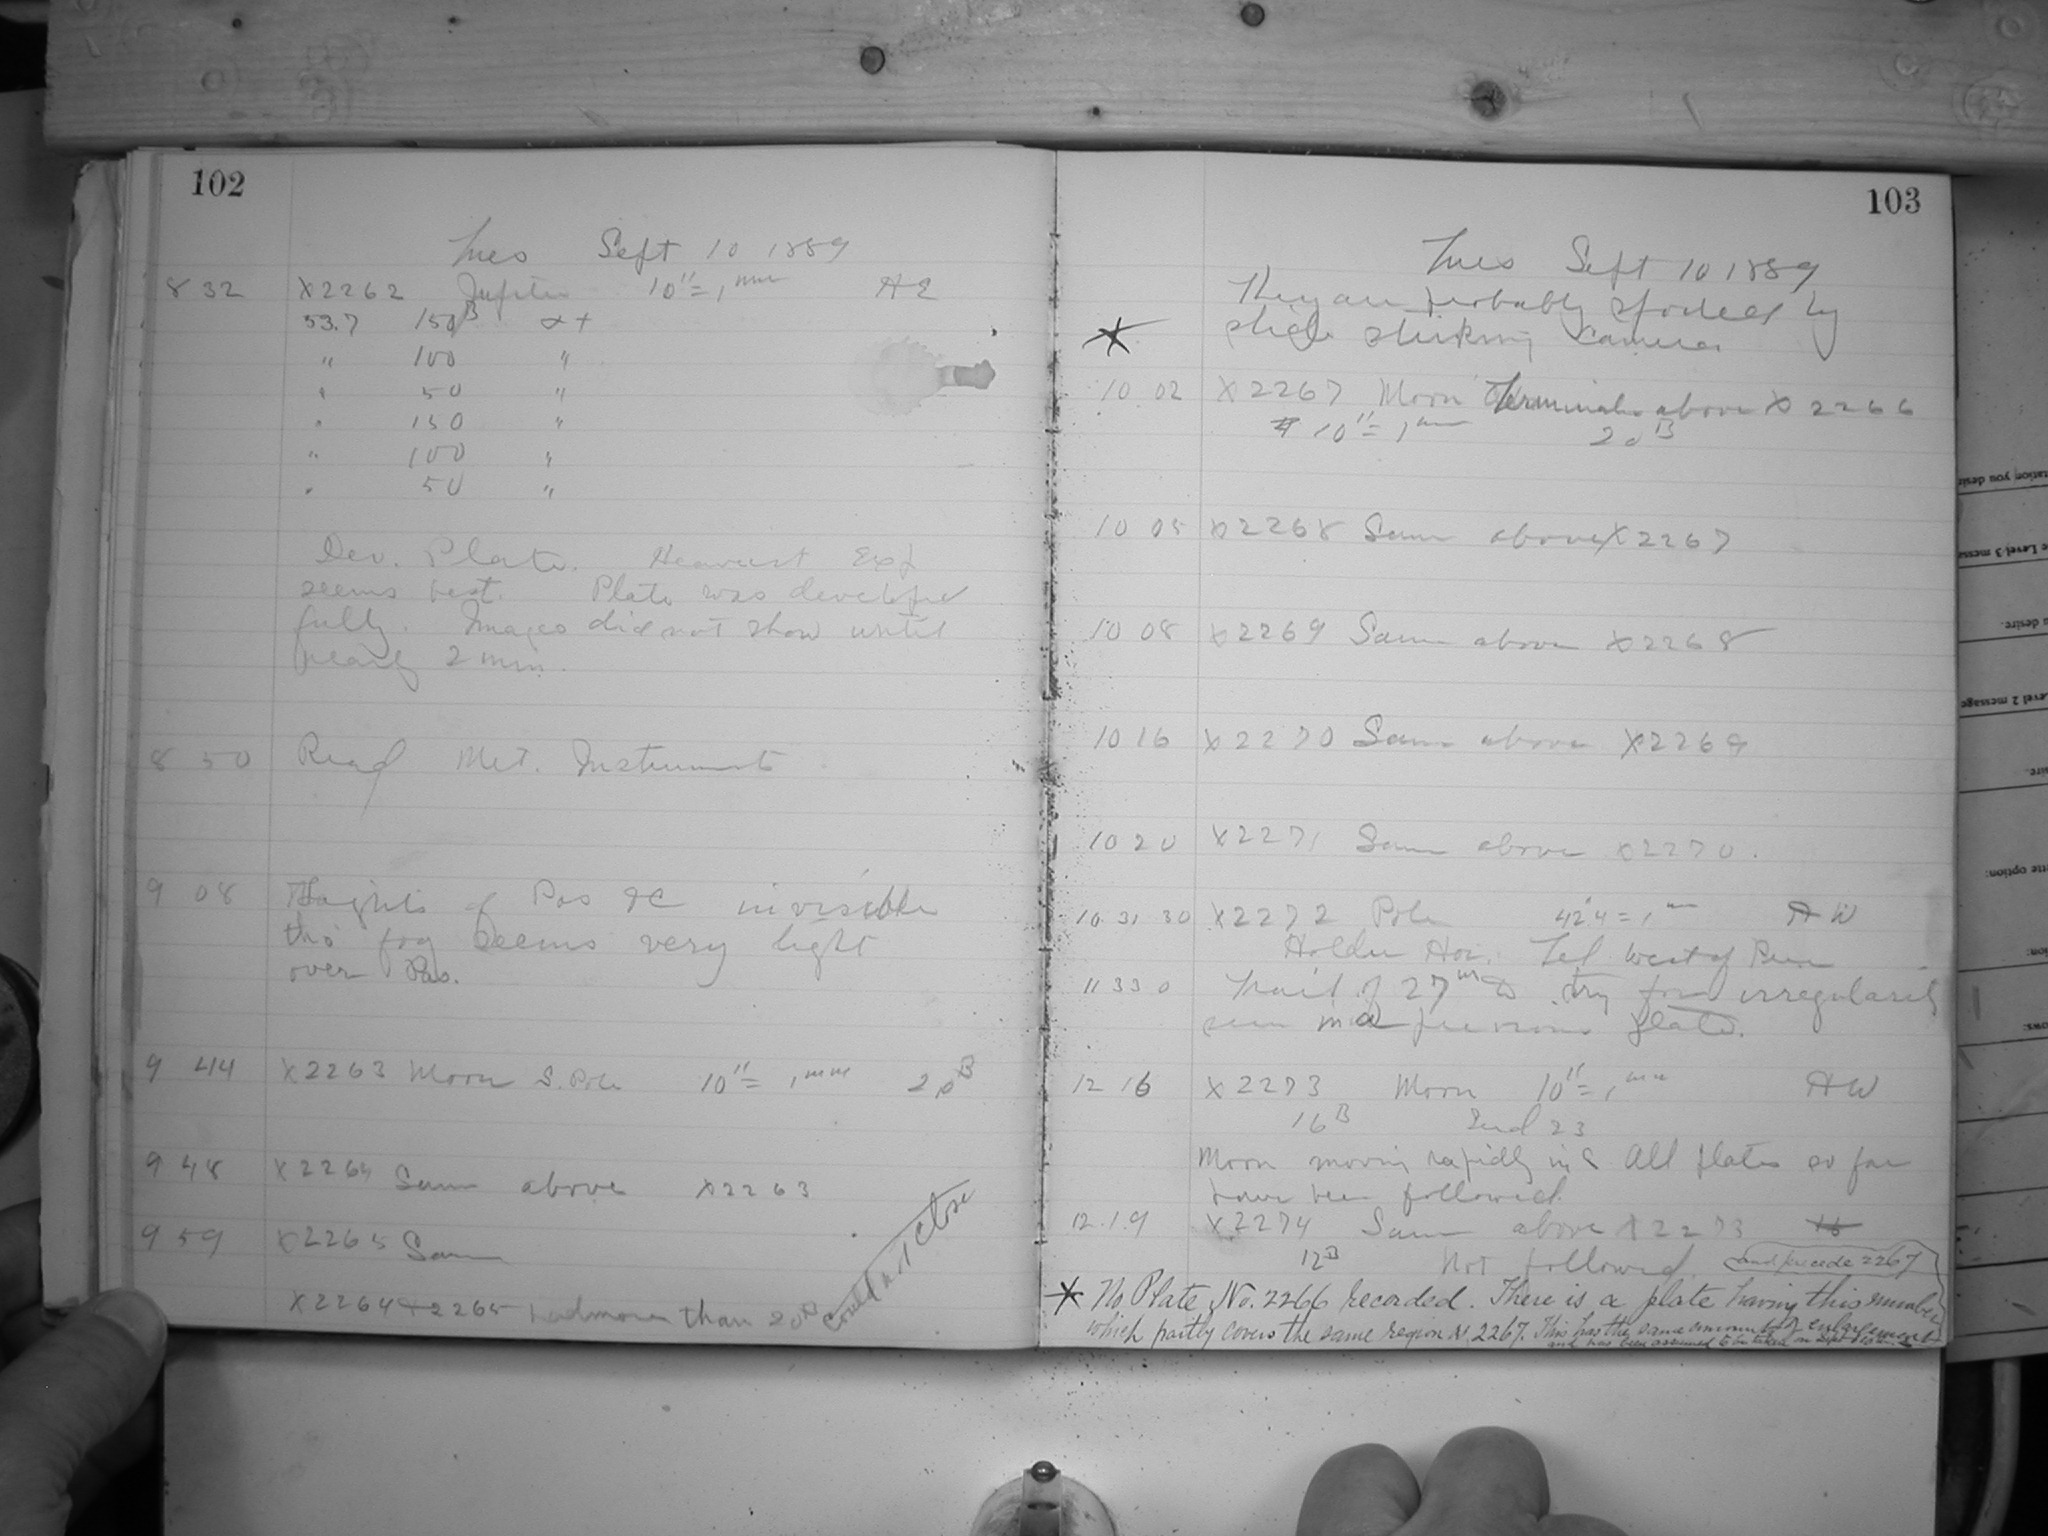 102
Tues Sept 10 1889
8 32 X2262 Jupiter 10"=1mm AE
53.7 150B α+
" 100 "
" 50 "
" 150 "
" 100 "
" 50 "
Dev. Plate. Heaviest Exp
seems best. Plate was developed
fully. Images did not show until
nearly 2 min.
8 50 Read Met. Instruments
9 08 Heights of Pas &C invisible
tho' fog seems very light
over Pas.
9 44 X2263 Moon S. Pole 10"=1mm 20B
9 48 X2264 Same above X2263
9 59 X2265 Same
X2264 + 2265 had more than 20B could not close
103
Tues Sept 10 1889
They are probably spoiled by
slide sticking camera
*
10 02 X2267 Moon Terminator above X2266
10"=1mm 20B
10 05 X2268 Same above X2267
10 08 X2269 Same above X2268
10 16 X2270 Same above X2269
10 20 X2271 Same above X2270.
10 31 30 X2272 Pole 42'.4=1mm AW
Holder Hor. Tel. west of Pier
11 33 0 Trail of 27m to try for irregularity
seen in a previous plate.
12 16 X2273 Moon 10"=1mm AW
16B End 23
Moon moving rapidly in S. All plates so far
have been followed.
12.19 X2274 Same above X2273
12B Not followed.
and precede 2267
* No Plate No. 2266 recorded. There is a plate having this number
which partly covers the same region as 2267. This has the same amount of enlargement
and has been assumed to be taken on Sept